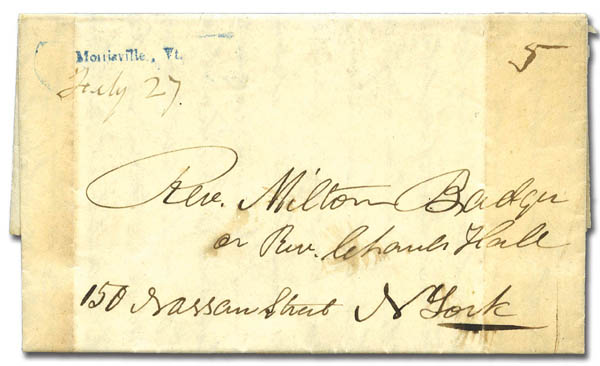 Morrisville, Vt.
5
Feby 27.
Rev. Milton Badger
or Rev. Charles Hall
150 Nassau Street N York